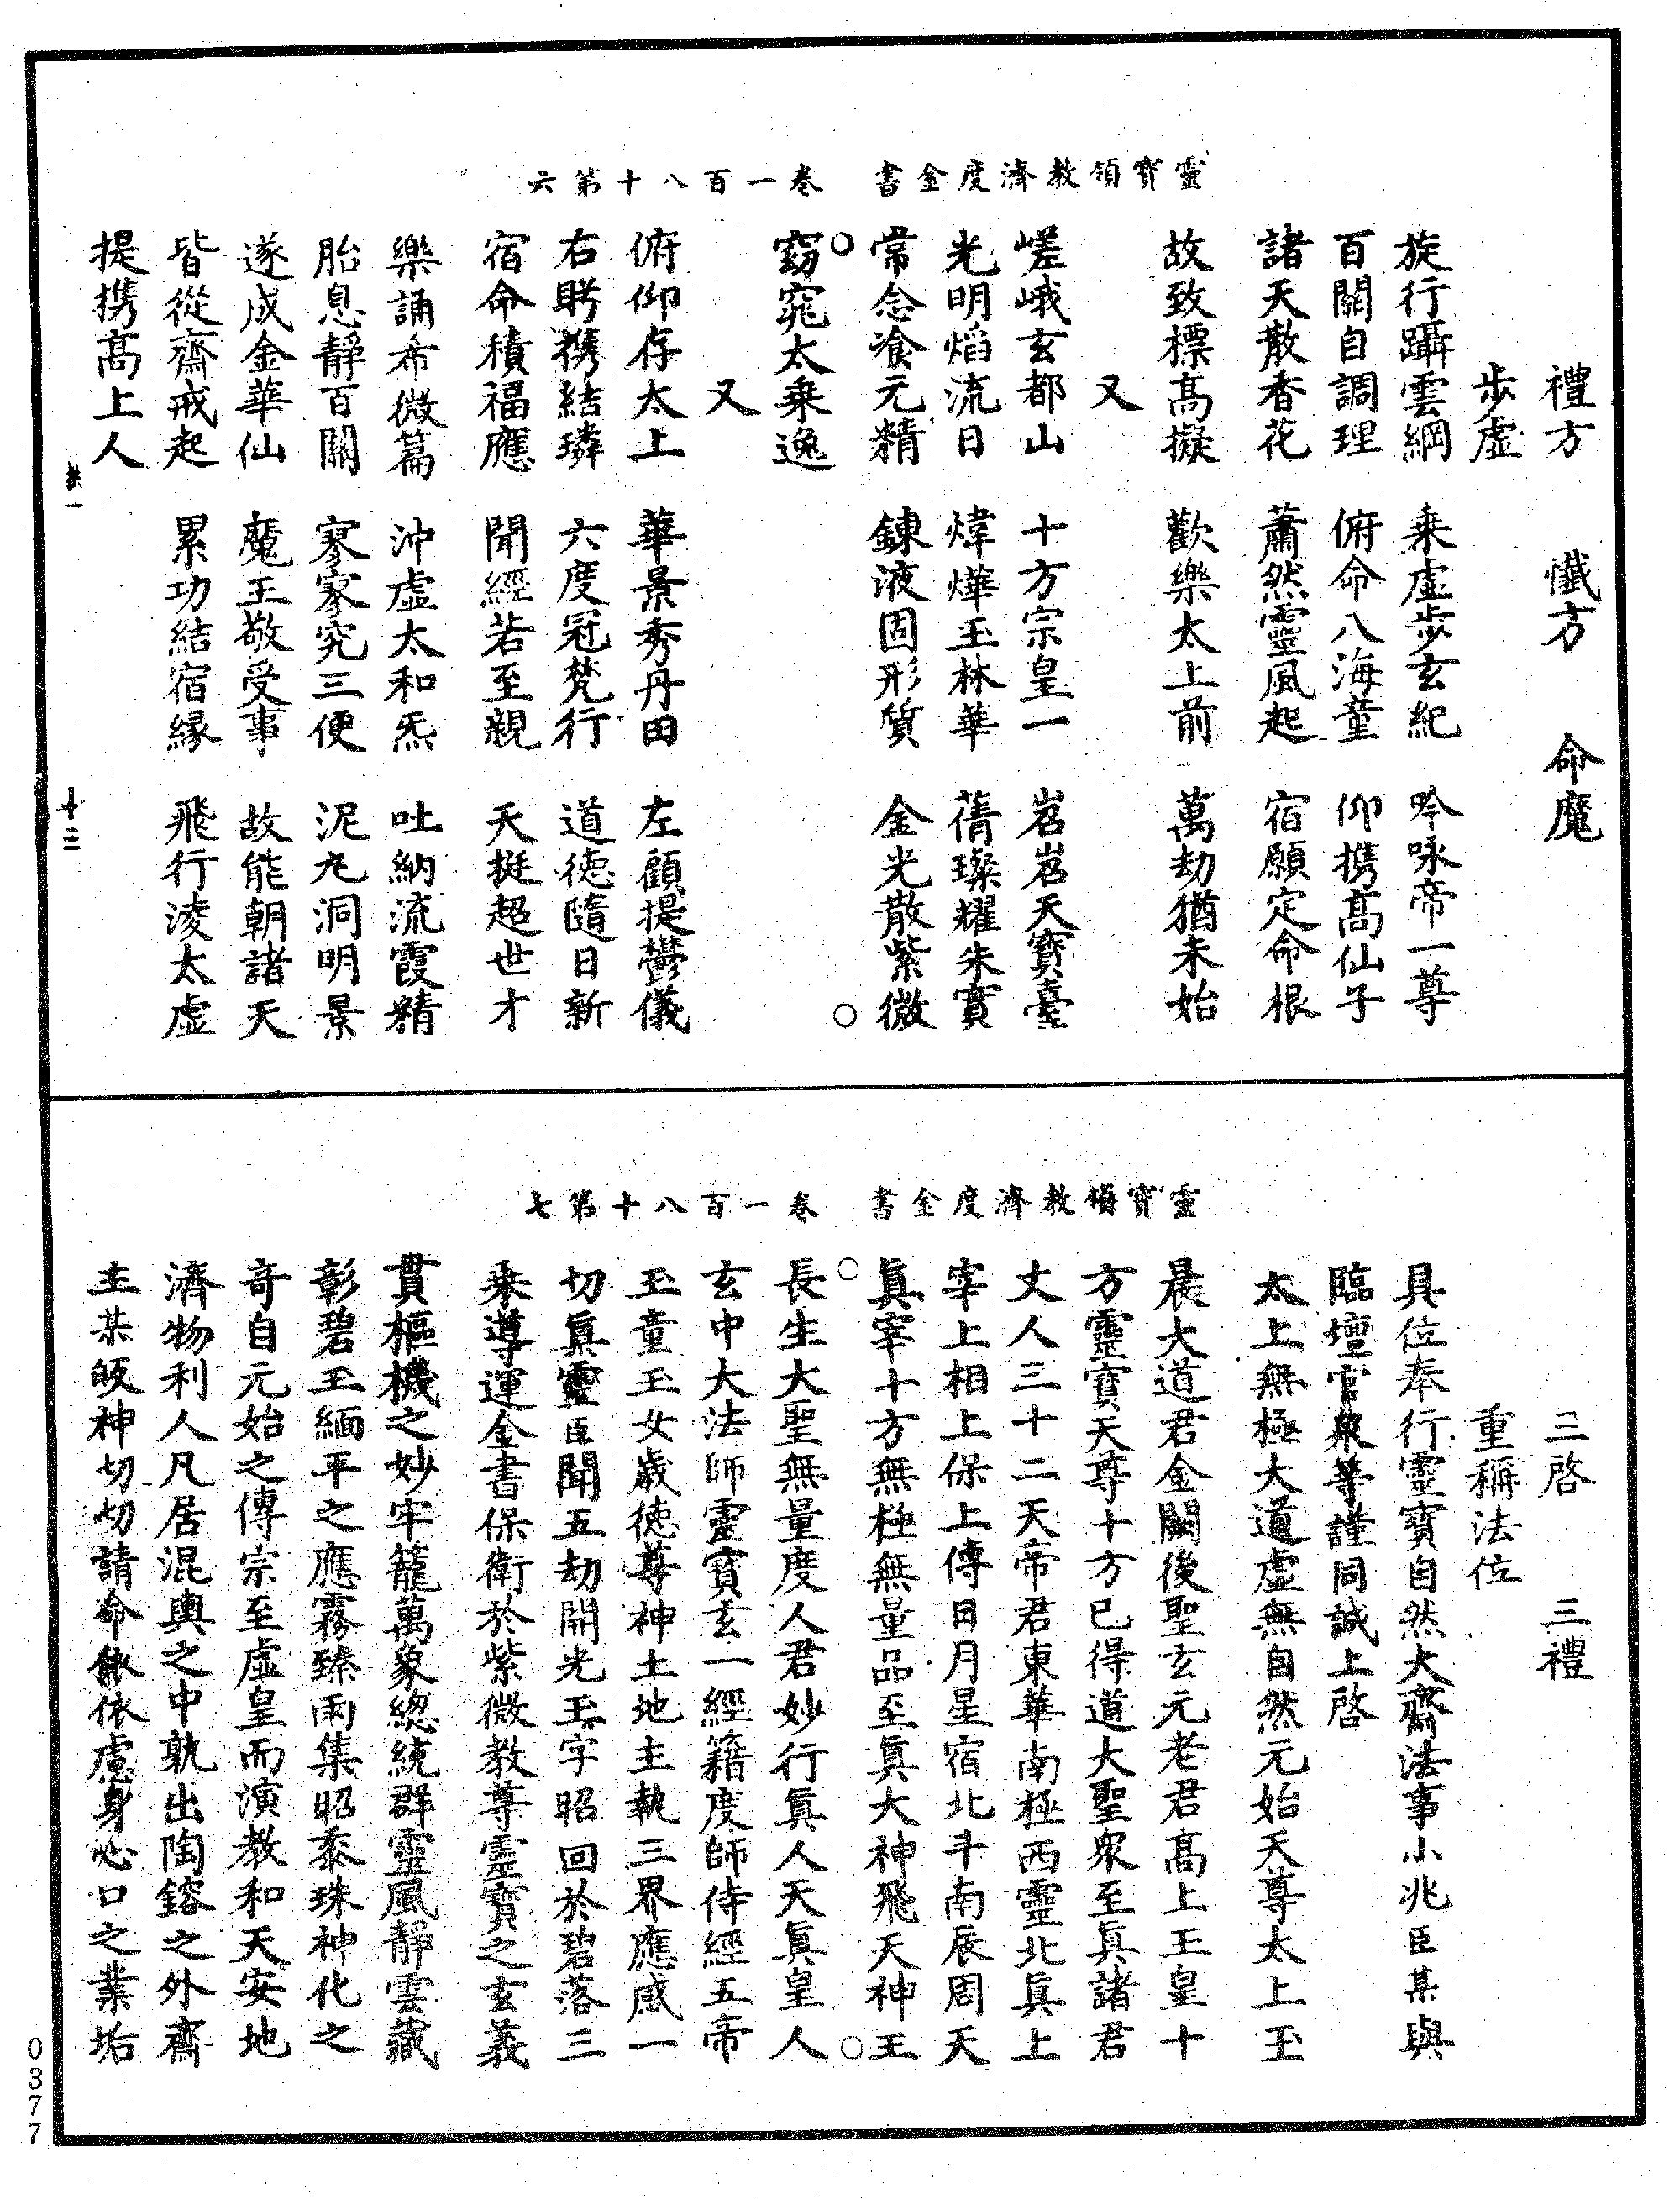 靈寶領教濟度金書　卷一百八十第六
禮方　懺方　命魔
步虛
旋行躡雲綱　乘虛步玄紀　吟咏帝一尊
百關自調理　俯命八海童　仰攜高仙子
諸天散香花　蕭然靈風起　宿願定命根
故致標高擬　歡樂太上前　萬劫猶未始
又
嵯峨玄都山　十方宗皇一　岧岧天寶臺
光明焰流日　煒燁玉林華　蒨璨耀朱實
常念飡元精　鍊液固形質　金光散紫微
窈窕太乘逸
又
俯仰存太上　華景秀丹田　左顧提鬱儀
右眄攜結璘　六度冠梵行　道德隨日新
宿命積福應　聞經若至親　天挺超世才
樂誦希微篇　沖虛太和炁　吐納流霞精
胎息靜百關　寥寥究三便　泥丸洞明景
遂成金華仙　魔王敬受事　故能朝諸天
皆從齋戒起　累功結宿緣　飛行淩太虛
提攜高上人
十三
靈寶領教濟度金書　卷一百八十第七
三啓　三禮
重稱法位
具位奉行靈寶自然大齋法事小兆臣某與
臨壇官衆等謹同誠上啓
太上無極大道虛無自然元始天尊太上玉
晨大道君金闕後聖玄元老君高上玉皇十
方靈寶天尊十方已得道大聖衆至眞諸君
丈人三十二天帝君東華南極西靈北眞上
宰上相上保上傅日月星宿北斗南辰周天
眞宰十方無極無量品至眞大神飛天神王
長生大聖無量度人君妙行眞人天眞皇人
玄中大法師靈寶玄一經籍度師侍經五帝
玉童玉女歲德尊神土地主執三界應感一
切眞靈臣聞五劫開光玉字昭回於碧落三
乘導運金書保衛於紫微教尊靈寶之玄義
貫樞機之妙牢籠萬象總統群靈風靜雲藏
彰碧玉緬平之應霧臻雨集昭黍珠神化之
奇自元始之傳宗至虛皇而演教和天安地
濟物利人凡居混輿之中孰出陶鎔之外齋
主某皈神切切請命依依慮身心口之業垢
0377